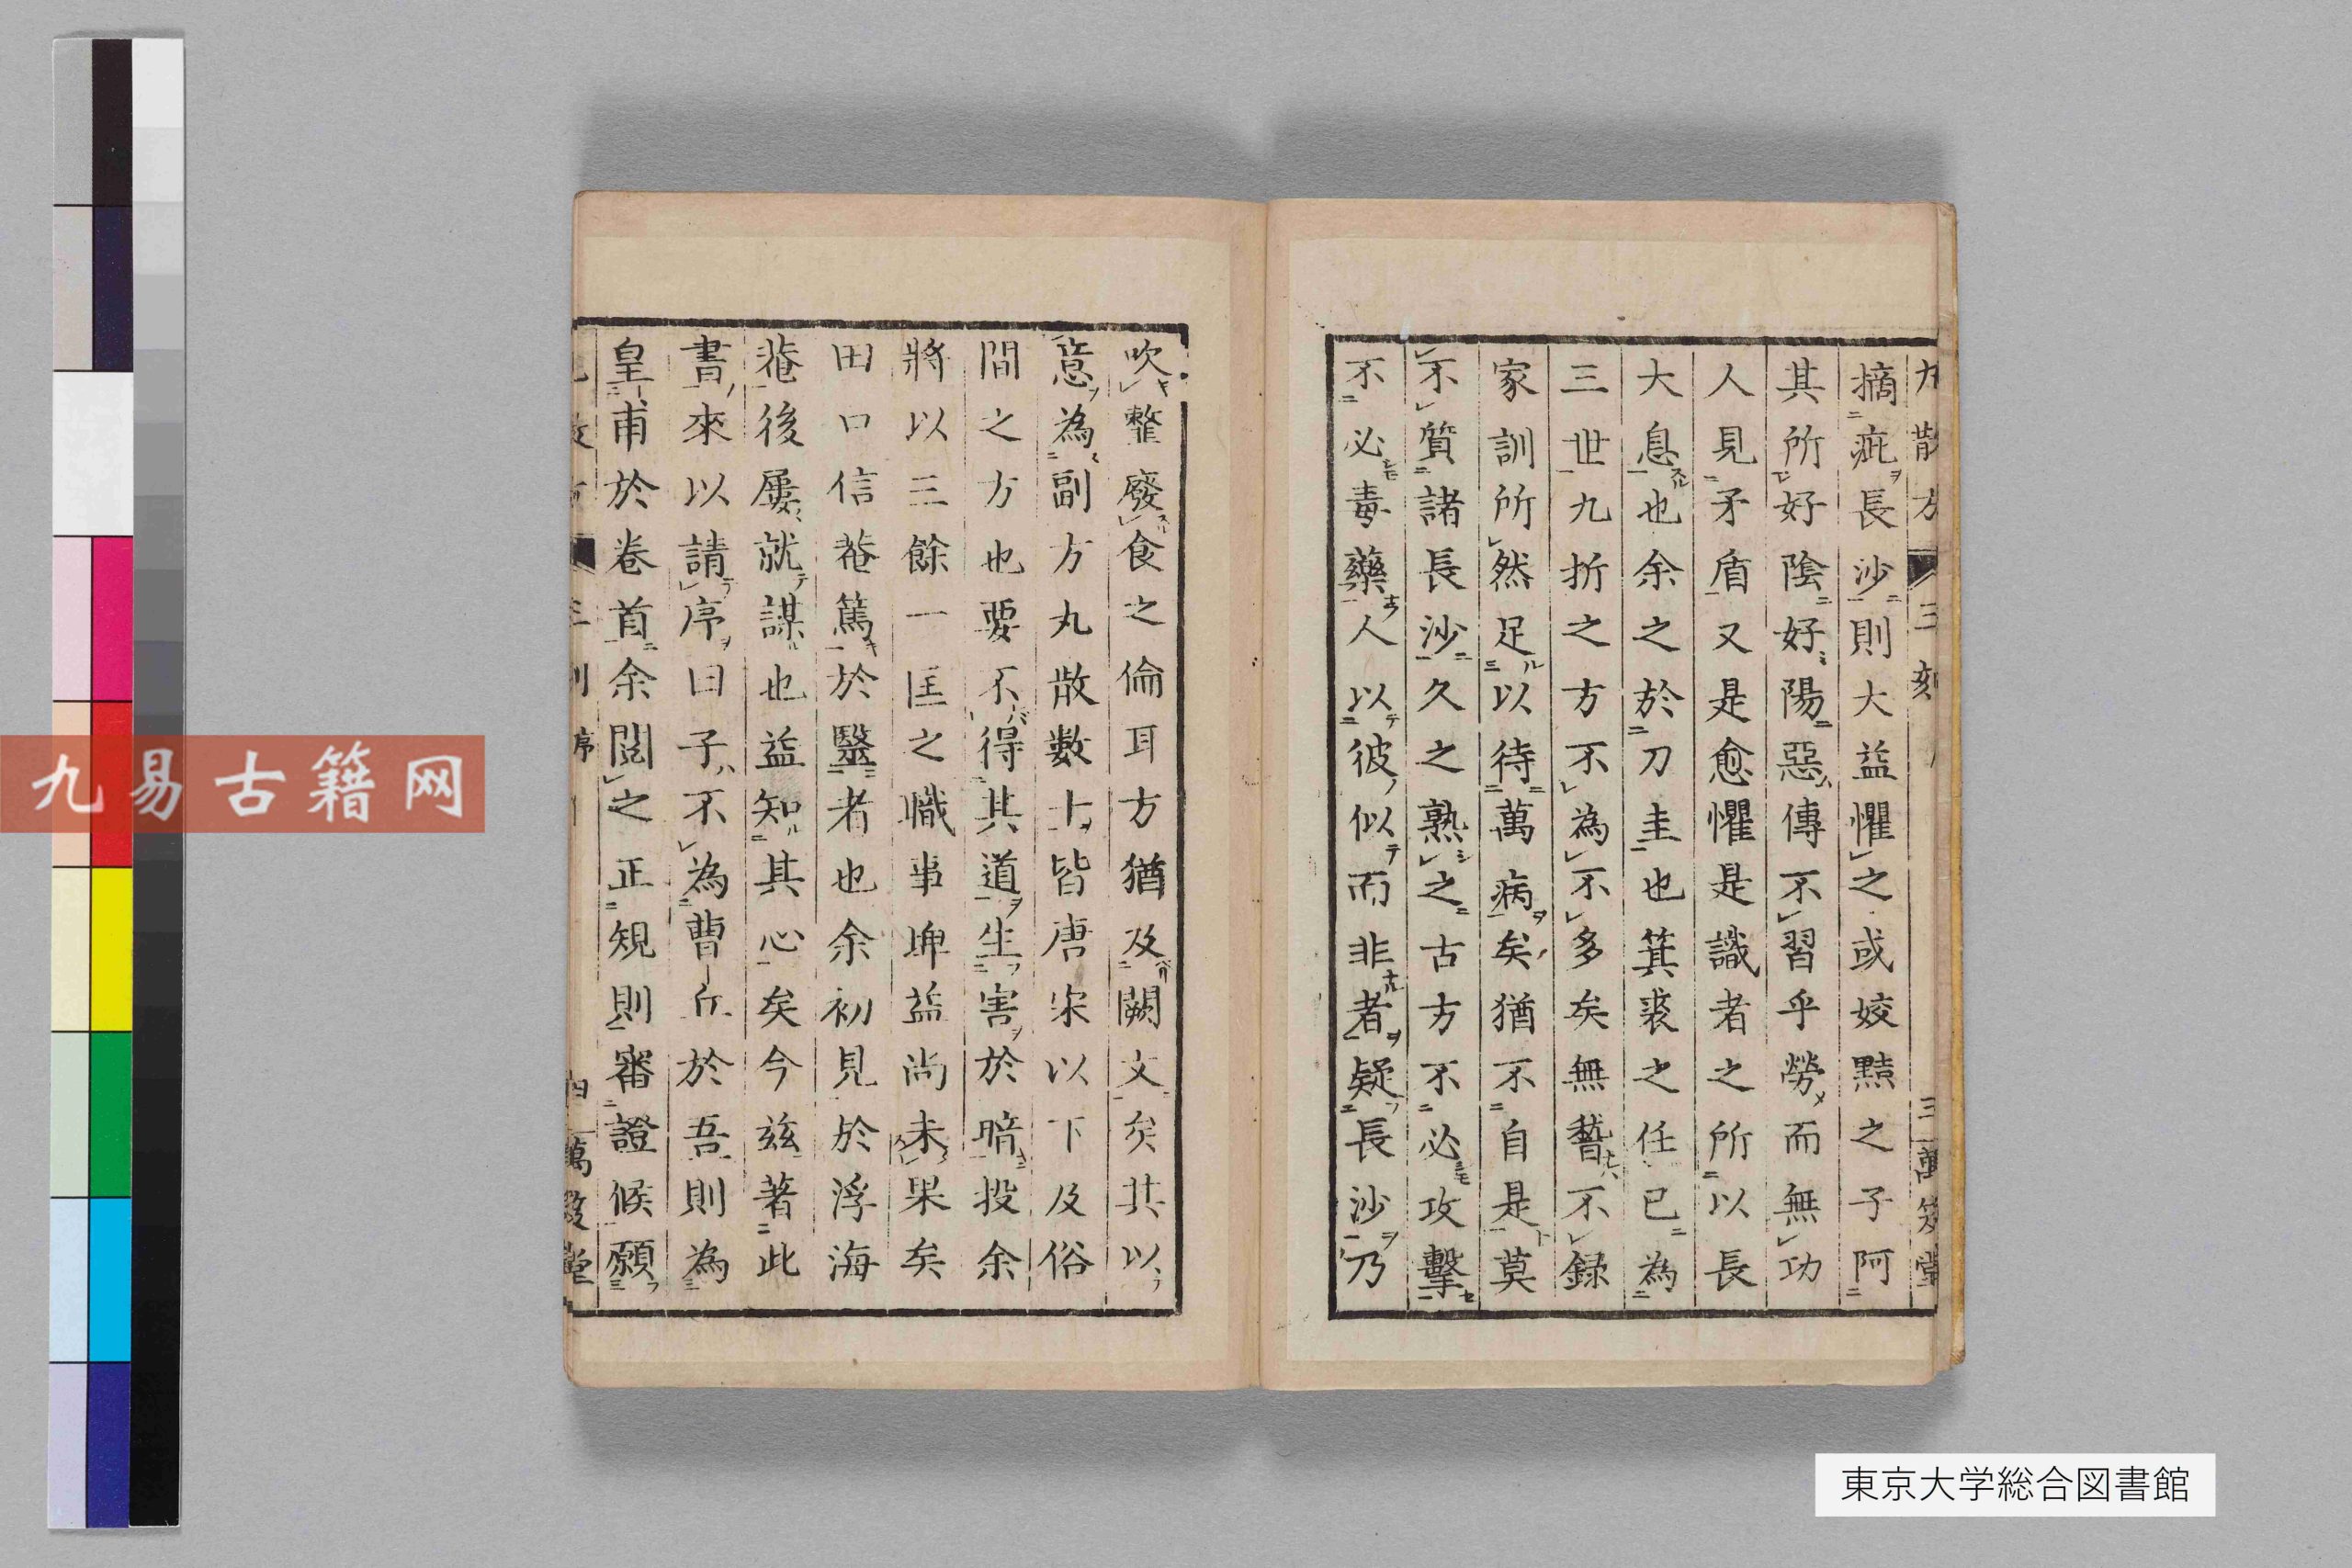 摘疵長沙則大益懼之或姣黠之子阿
其所好好陰好陽惡傳不習乎勞而無功
人見矛盾又是愈懼是識者之所以長
大息也余之於刀圭也箕裘之任已為
三世九折之方不為不多矣無暬不録
家訓所然足以待萬病矣猶不自是莫
不質諸長沙久之熟之古方不必攻擊
不必毒藥人以彼似而非者疑長沙乃
吹整廢食之倫耳方猶及闕文矣其以
意為副方丸散數十皆唐宋以下及俗
間之方也要不得其道生害於暗投余
將以三餘一匡之職事埤益尚未果矣
田口信菴篤於醫者也余初見於浮海
菴後屢就謀也益知其心矣今茲著此
書來以請序曰子不為曹丘於吾則為
皇甫於卷首余閲之正規則審證候願
三刻
三 萬笈堂
序
四 萬笈堂
九易古籍网
東京大学総合図書館